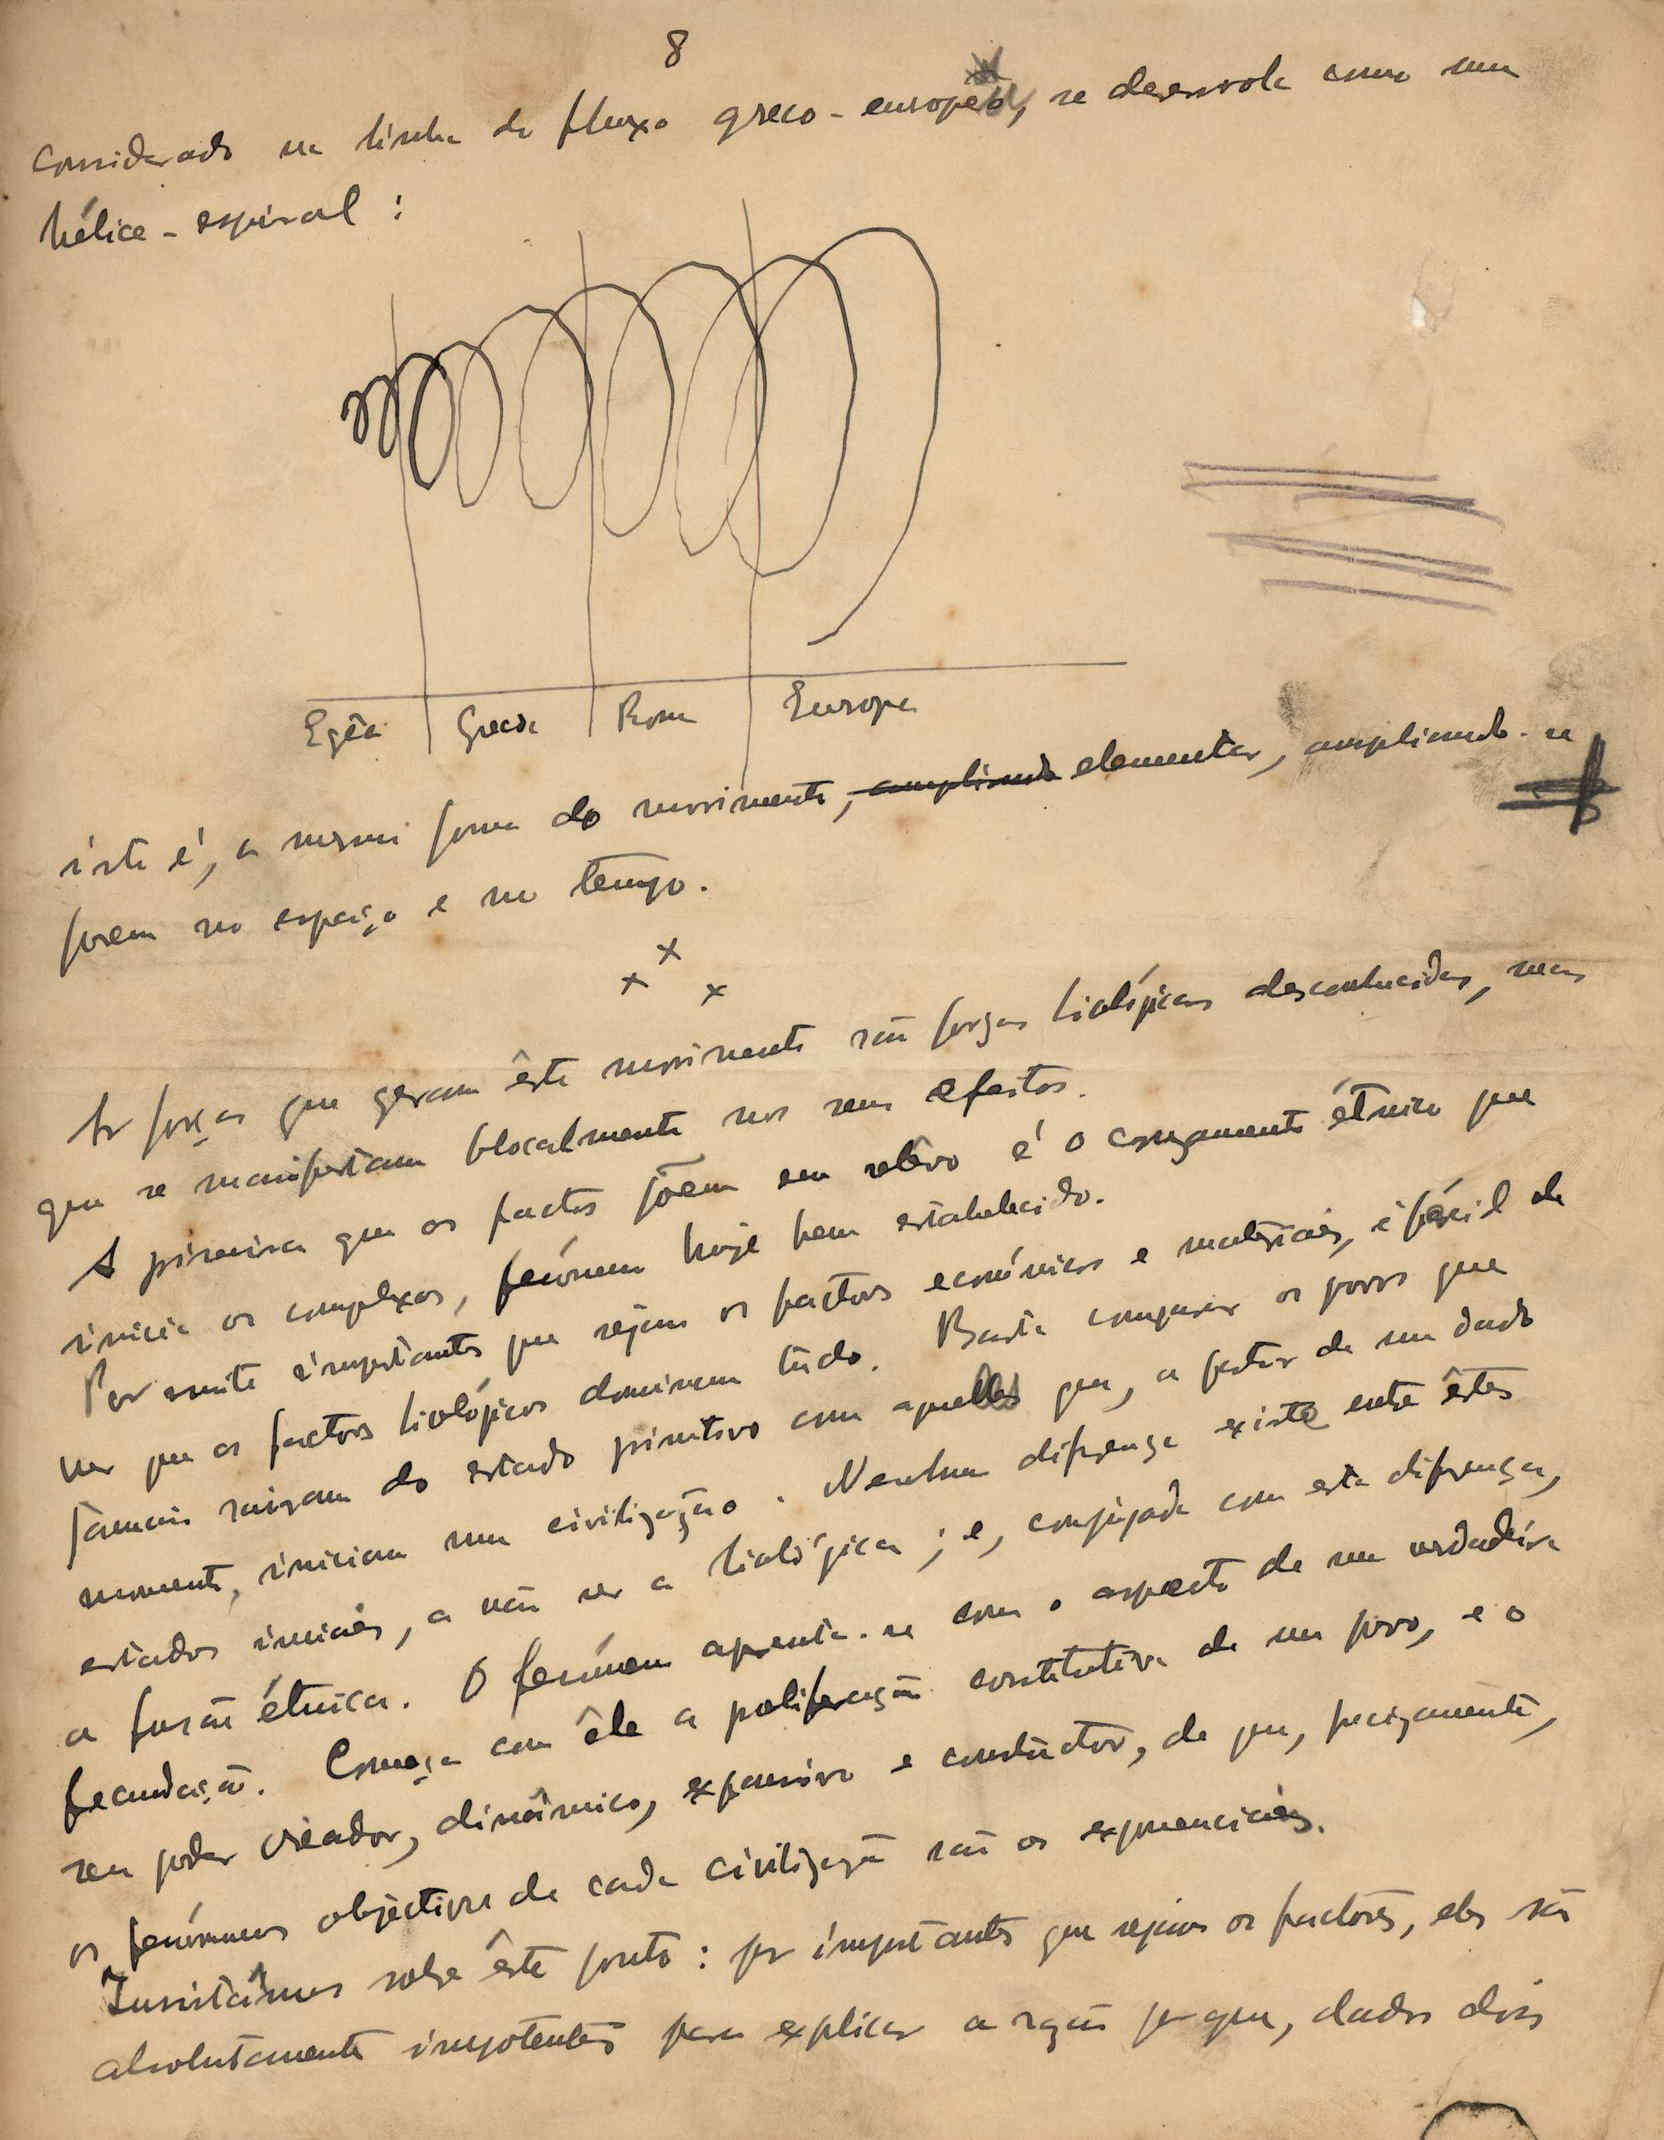 8
considerado na linha do fluxo greco-europeu, se desenrola como uma
hélice-espiral:
Egêa Grecia Roma Europa
isto é, a mesma forma do movimento, ampliando elementar, ampliando-se
porem no espaço e no tempo.
x x x
As forças que geram êste movimento são forças biológicas desconhecidas, mas
que se manifestam blocalmente nos seus efeitos.
A primeira que os factos põem em relêvo é o cruzamento étnico que
inicia os complexos, fenómeno hoje bem estabelecido.
Por muito importantes que sejam os factores económicos e materiais, é fácil de
ver que os factores biológicos dominam tudo. Basta comparar os povos que
jamais sairam do estado primitivo com aqueles que, a partir de um dado
momento, iniciam uma civilização. Nenhuma diferença existe entre êstes
estados iniciais, a não ser a biológica; e, conjugada com esta diferença,
a fusão étnica. O fenómeno apresenta-se com o aspecto de uma verdadeira
fecundação. Começa com êle a proliferação constitutiva de um povo, e o
seu poder creador, dinâmico, expansivo e construtor, de que, precisamente,
os fenómenos objectivos de cada civilização são os exponenciais.
Insistâmos sobre êste ponto: por importantes que sejam os factores, eles são
absolutamente impotentes para explicar a razão por que, dados dois